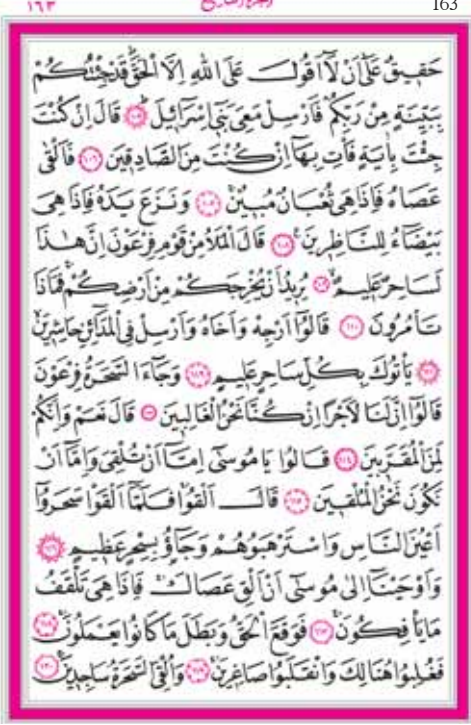 ١٦٣ 163
حَقِيقٌ عَلٰٓى اَنْ لَٓا اَقُولَ عَلَى اللّٰهِ اِلَّا الْحَقَّۜ قَدْ جِئْتُكُمْ
بِبَيِّنَةٍ مِنْ رَبِّكُمْ فَاَرْسِلْ مَعِيَ بَنِٓي اِسْرَٓائِيلَۜ ﴿١٠٥﴾ قَالَ اِنْ كُنْتَ
جِئْتَ بِاٰيَةٍ فَأْتِ بِهَٓا اِنْ كُنْتَ مِنَ الصَّادِقِينَ ﴿١٠٦﴾ فَاَلْقٰى
عَصَاهُ فَاِذَا هِيَ ثُعْبَانٌ مُبِينٌۚ ﴿١٠٧﴾ وَنَزَعَ يَدَهُ فَاِذَا هِيَ
بَيْضَٓاءُ لِلنَّاظِرِينَ۟ ﴿١٠٨﴾ قَالَ الْمَلَاُ مِنْ قَوْمِ فِرْعَوْنَ اِنَّ هٰذَا
لَسَاحِرٌ عَلِيمٌۙ ﴿١٠٩﴾ يُرِيدُ اَنْ يُخْرِجَكُمْ مِنْ اَرْضِكُمْۚ فَمَاذَا
تَأْمُرُونَ ﴿١١٠﴾ قَالُٓوا اَرْجِهْ وَاَخَاهُ وَاَرْسِلْ فِي الْمَدَٓائِنِ حَاشِرِينَۙ
﴿١١١﴾ يَأْتُوكَ بِكُلِّ سَاحِرٍ عَلِيمٍ ﴿١١٢﴾ وَجَٓاءَ السَّحَرَةُ فِرْعَوْنَ
قَالُٓوا اِنَّ لَنَا لَاَجْرًا اِنْ كُنَّا نَحْنُ الْغَالِبِينَ ﴿١١٣﴾ قَالَ نَعَمْ وَاِنَّكُمْ
لَمِنَ الْمُقَرَّبِينَ ﴿١١٤﴾ قَالُوا يَا مُوسٰٓى اِمَّٓا اَنْ تُلْقِيَ وَاِمَّٓا اَنْ
نَكُونَ نَحْنُ الْمُلْقِينَ ﴿١١٥﴾ قَالَ اَلْقُواۚ فَلَمَّٓا اَلْقَوْا سَحَرُٓوا
اَعْيُنَ النَّاسِ وَاسْتَرْهَبُوهُمْ وَجَٓاؤُ۫ بِسِحْرٍ عَظِيمٍ ﴿١١٦﴾
وَاَوْحَيْنَٓا اِلٰى مُوسٰٓى اَنْ اَلْقِ عَصَاكَۚ فَاِذَا هِيَ تَلْقَفُ
مَا يَأْفِكُونَۚ ﴿١١٧﴾ فَوَقَعَ الْحَقُّ وَبَطَلَ مَا كَانُوا يَعْمَلُونَۚ ﴿١١٨﴾
فَغُلِبُوا هُنَالِكَ وَانْقَلَبُوا صَاغِرِينَۚ ﴿١١٩﴾ وَاُلْقِيَ السَّحَرَةُ سَاجِدِينَۚ ﴿١٢٠﴾